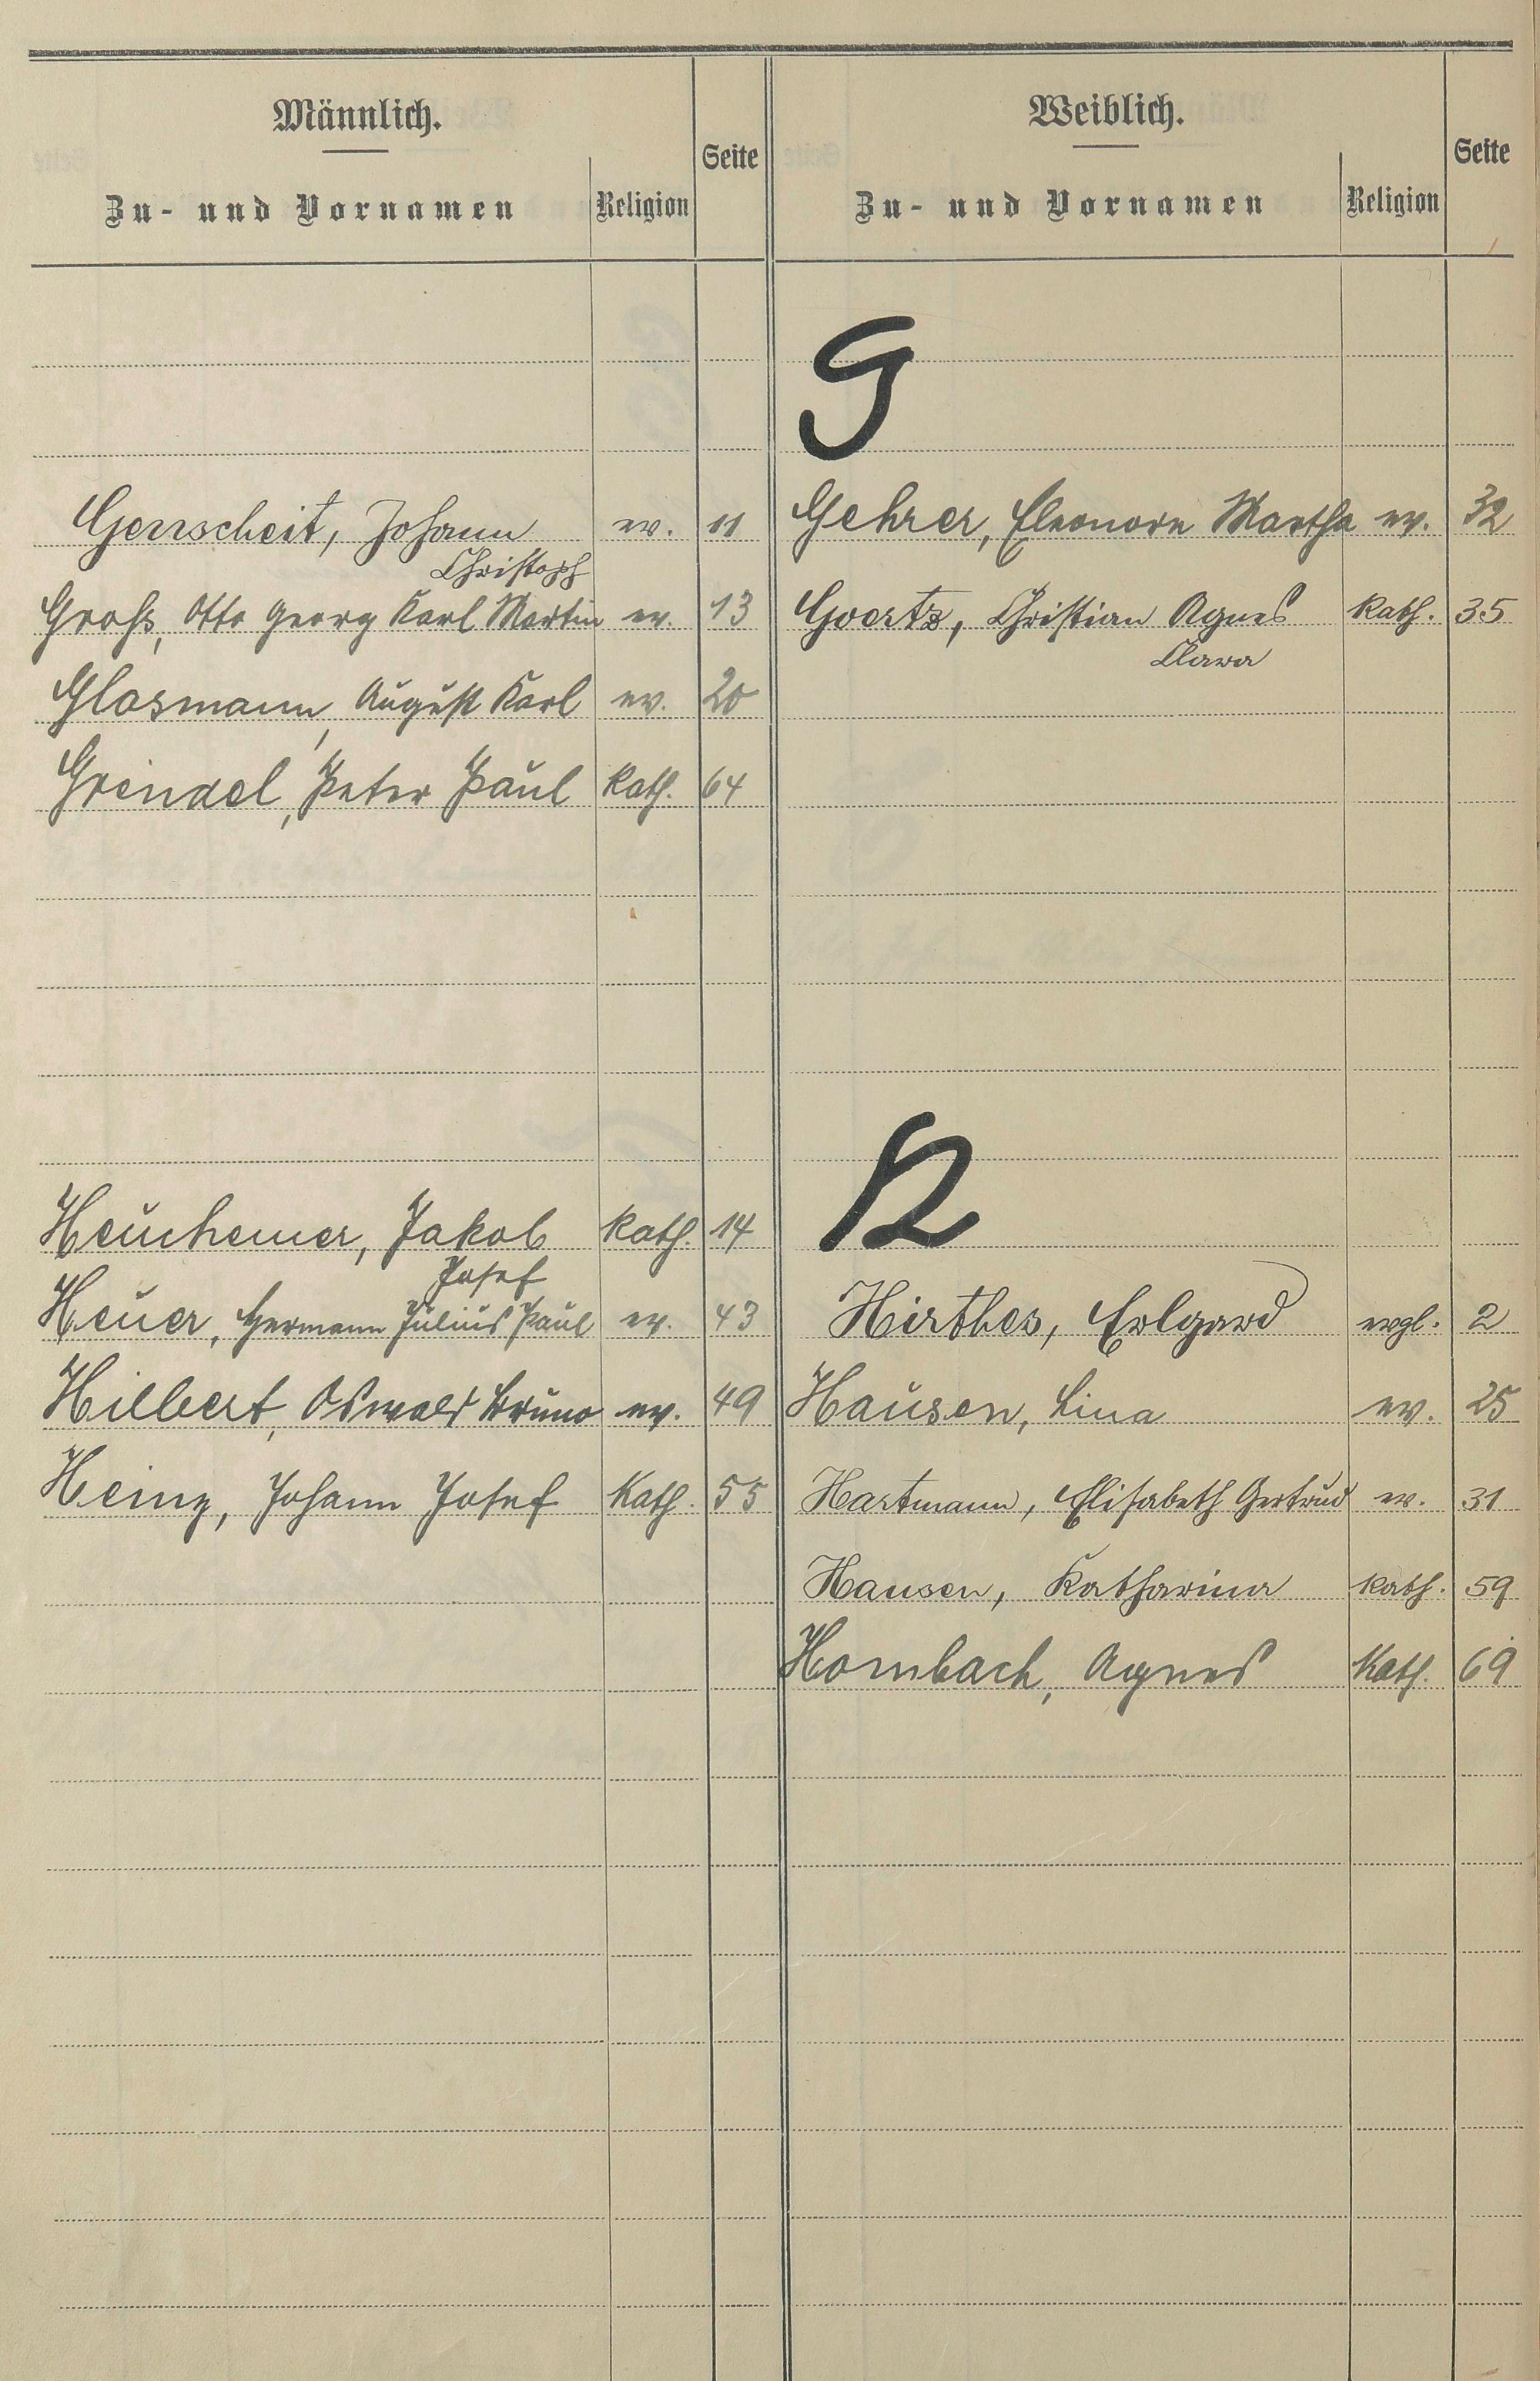 Männlich.
Zu- und Vornamen Religion Seite
Gerrscheit, Johann ev. 11
Christoph
Groß, Otto Georg Karl Martin ev. 13
Glasmann, August Karl ev. 20
Grendel, Peter Paul Kath. 64
Heuchemer, Jakob Kath. 14
Josef
Heuer, Hermann Julius Paul ev. 43
Hilbert, Oswald Bruno ev. 49
Heinz, Johann Josef Kath. 55
Weiblich.
Zu- und Vornamen Religion Seite
G
Gehrer, Eleonore Martha ev. 32
Goertz, Christian Agnes Kath. 35
Clara
H
Hirthes, Erlgard evgl. 2
Hausen, Lina ev. 25
Hartmann, Elisabeth Gertrud ev. 31
Hausen, Katharina Kath. 59
Hombach, Agnes Kath. 69